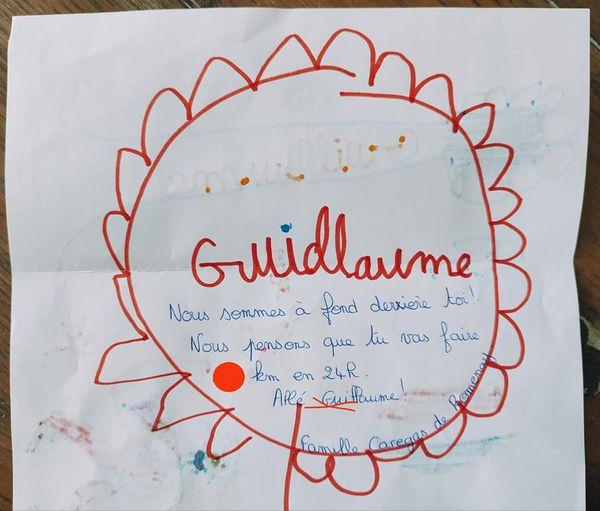 Guillaume
Guillaume
Nous sommes à fond derrière toi!
Nous pensons que tu vas faire
km en 24R.
Allé Guillaume!
Famille Caregas de Romenay